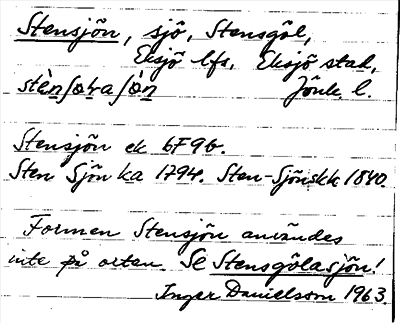 Stensjön, sjö, Stensgöl,
Eksjö lfs. Eksjö stad,
Jönk. l.
Stensjön ek 6F9b.
Sten Sjön ka 1794. Sten-Sjön skk 1840.
Formen Stensjön användes
inte på orten. Se Stensgölasjön!
Inger Danielsson 1963.